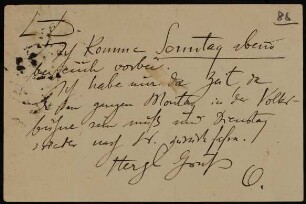 88
Ich komme Sonntag abend
bei euch vorbei.
Ich habe nur da Zeit, da
ich den ganzen Montag in der Volks-
bühne sein muß und Dienstag
wieder nach Dr. zurück fahre.
Herzl Gruß
O.